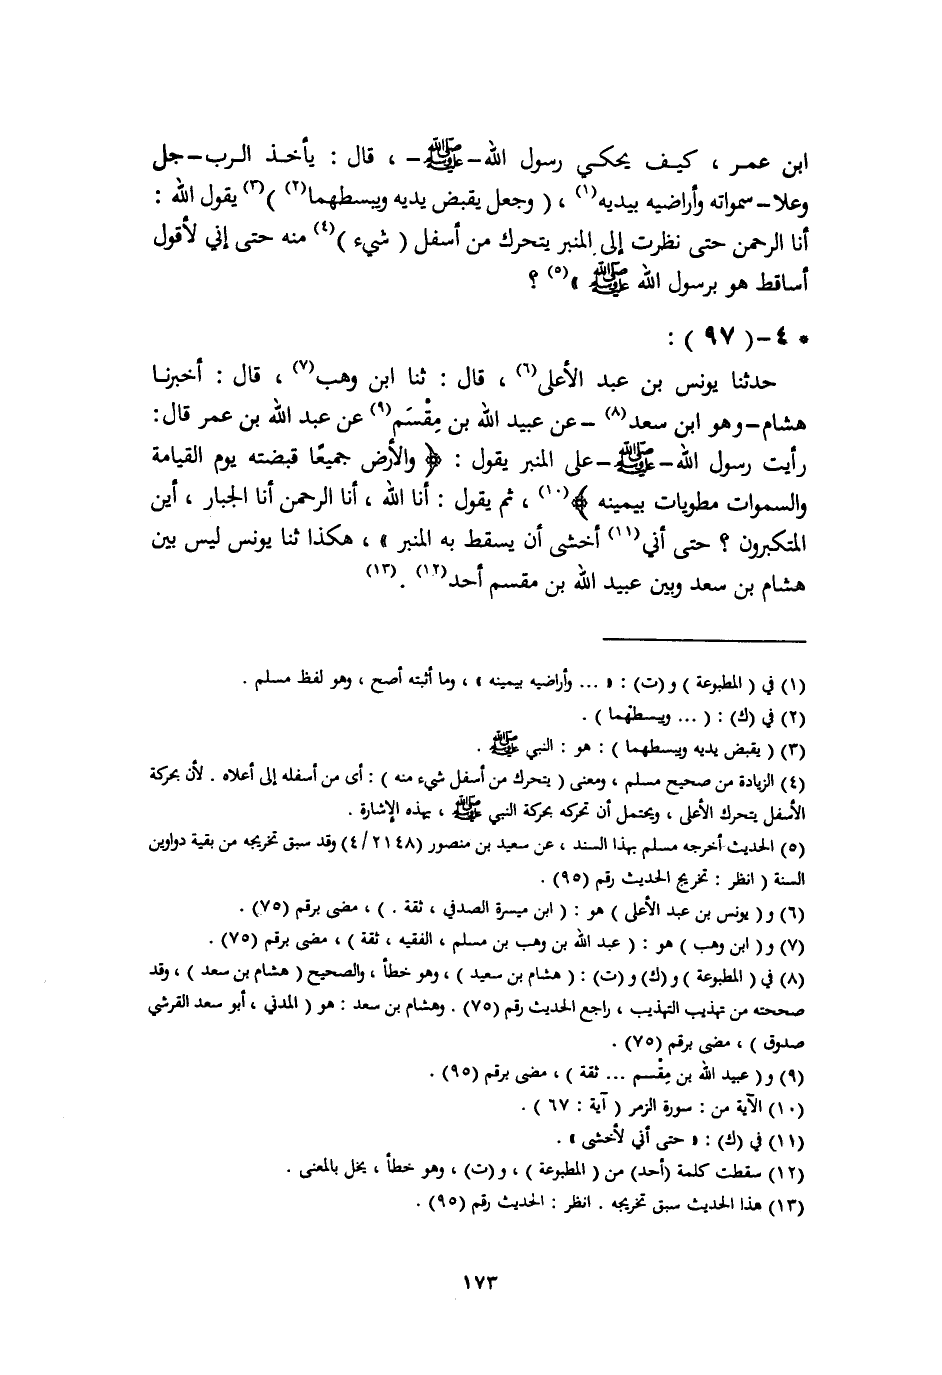 ابن عمر ، كيف يحكي رسول الله -ﷺ- ، قال : يأخذ الرب-جل
وعلا-سمواته وأراضيه بيديه(١) ، ( وجعل يقبض يديه ويبسطهما(٢) )(٣) يقول الله :
أنا الرحمن حتى نظرت إلى المنبر يتحرك من أسفل ( شيء )(٤) منه حتى إني لأقول
أساقط هو برسول الله ﷺ »(٥) ؟
* ٤-( ٩٧ ) :
حدثنا يونس بن عبد الأعلى(٦) ، قال : ثنا ابن وهب(٧) ، قال : أخبرنا
هشام-وهو ابن سعد(٨) -عن عبيد الله بن مِقْسَم(٩) عن عبد الله بن عمر قال:
رأيت رسول الله-ﷺ-على المنبر يقول : ﴿ والأرض جميعًا قبضته يوم القيامة
والسموات مطويات بيمينه ﴾(١٠) ، ثم يقول : أنا الله ، أنا الرحمن أنا الجبار ، أين
المتكبرون ؟ حتى أني(١١) أخشى أن يسقط به المنبر » ، هكذا ثنا يونس ليس بين
هشام بن سعد وبين عبيد الله بن مقسم أحد(١٢) .(١٣)
(١) في ( المطبوعة ) و(ت) : « ... وأراضيه بيمينه » ، وما أثبته أصح ، وهو لفظ مسلم .
(٢) في (ك) : ( ... ويبسطهما ) .
(٣) ( يقبض يديه ويبسطهما ) : هو : النبي ﷺ .
(٤) الزيادة من صحيح مسلم ، ومعنى ( يتحرك من أسفل شيء منه ) : أى من أسفله إلى أعلاه . لأن بحركة
الأسفل يتحرك الأعلى ، ويحتمل أن تحركه بحركة النبي ﷺ ، بهذه الإشارة .
(٥) الحديث أخرجه مسلم بهذا السند ، عن سعيد بن منصور (٤/٢١٤٨) وقد سبق تخريجه من بقية دواوين
السنة ( انظر : تخريج الحديث رقم (٩٥) .
(٦) و( يونس بن عبد الأعلى ) هو : ( ابن ميسرة الصدفي ، ثقة . ) ، مضى برقم (٧٥) .
(٧) و( ابن وهب ) هو : ( عبد الله بن وهب بن مسلم ، الفقيه ، ثقة ) ، مضى برقم (٧٥) .
(٨) في ( المطبوعة ) و(ك) و(ت) : ( هشام بن سعيد ) ، وهو خطأ ، والصحيح ( هشام بن سعد ) ، وقد
صححته من تهذيب التهذيب ، راجع الحديث رقم (٧٥) . وهشام بن سعد : هو ( المدني ، أبو سعد القرشي
صدوق ) ، مضى برقم (٧٥) .
(٩) و( عبيد الله بن مِقْسم ... ثقة ) ، مضى برقم (٩٥) .
(١٠) الآية من : سورة الزمر ( آية : ٦٧ ) .
(١١) في (ك) : « حتى أني لأخشى » .
(١٢) سقطت كلمة (أحد) من ( المطبوعة ) ، و(ت) ، وهو خطأ ، يخل بالمعنى .
(١٣) هذا الحديث سبق تخريجه . انظر : الحديث رقم (٩٥) .
١٧٣